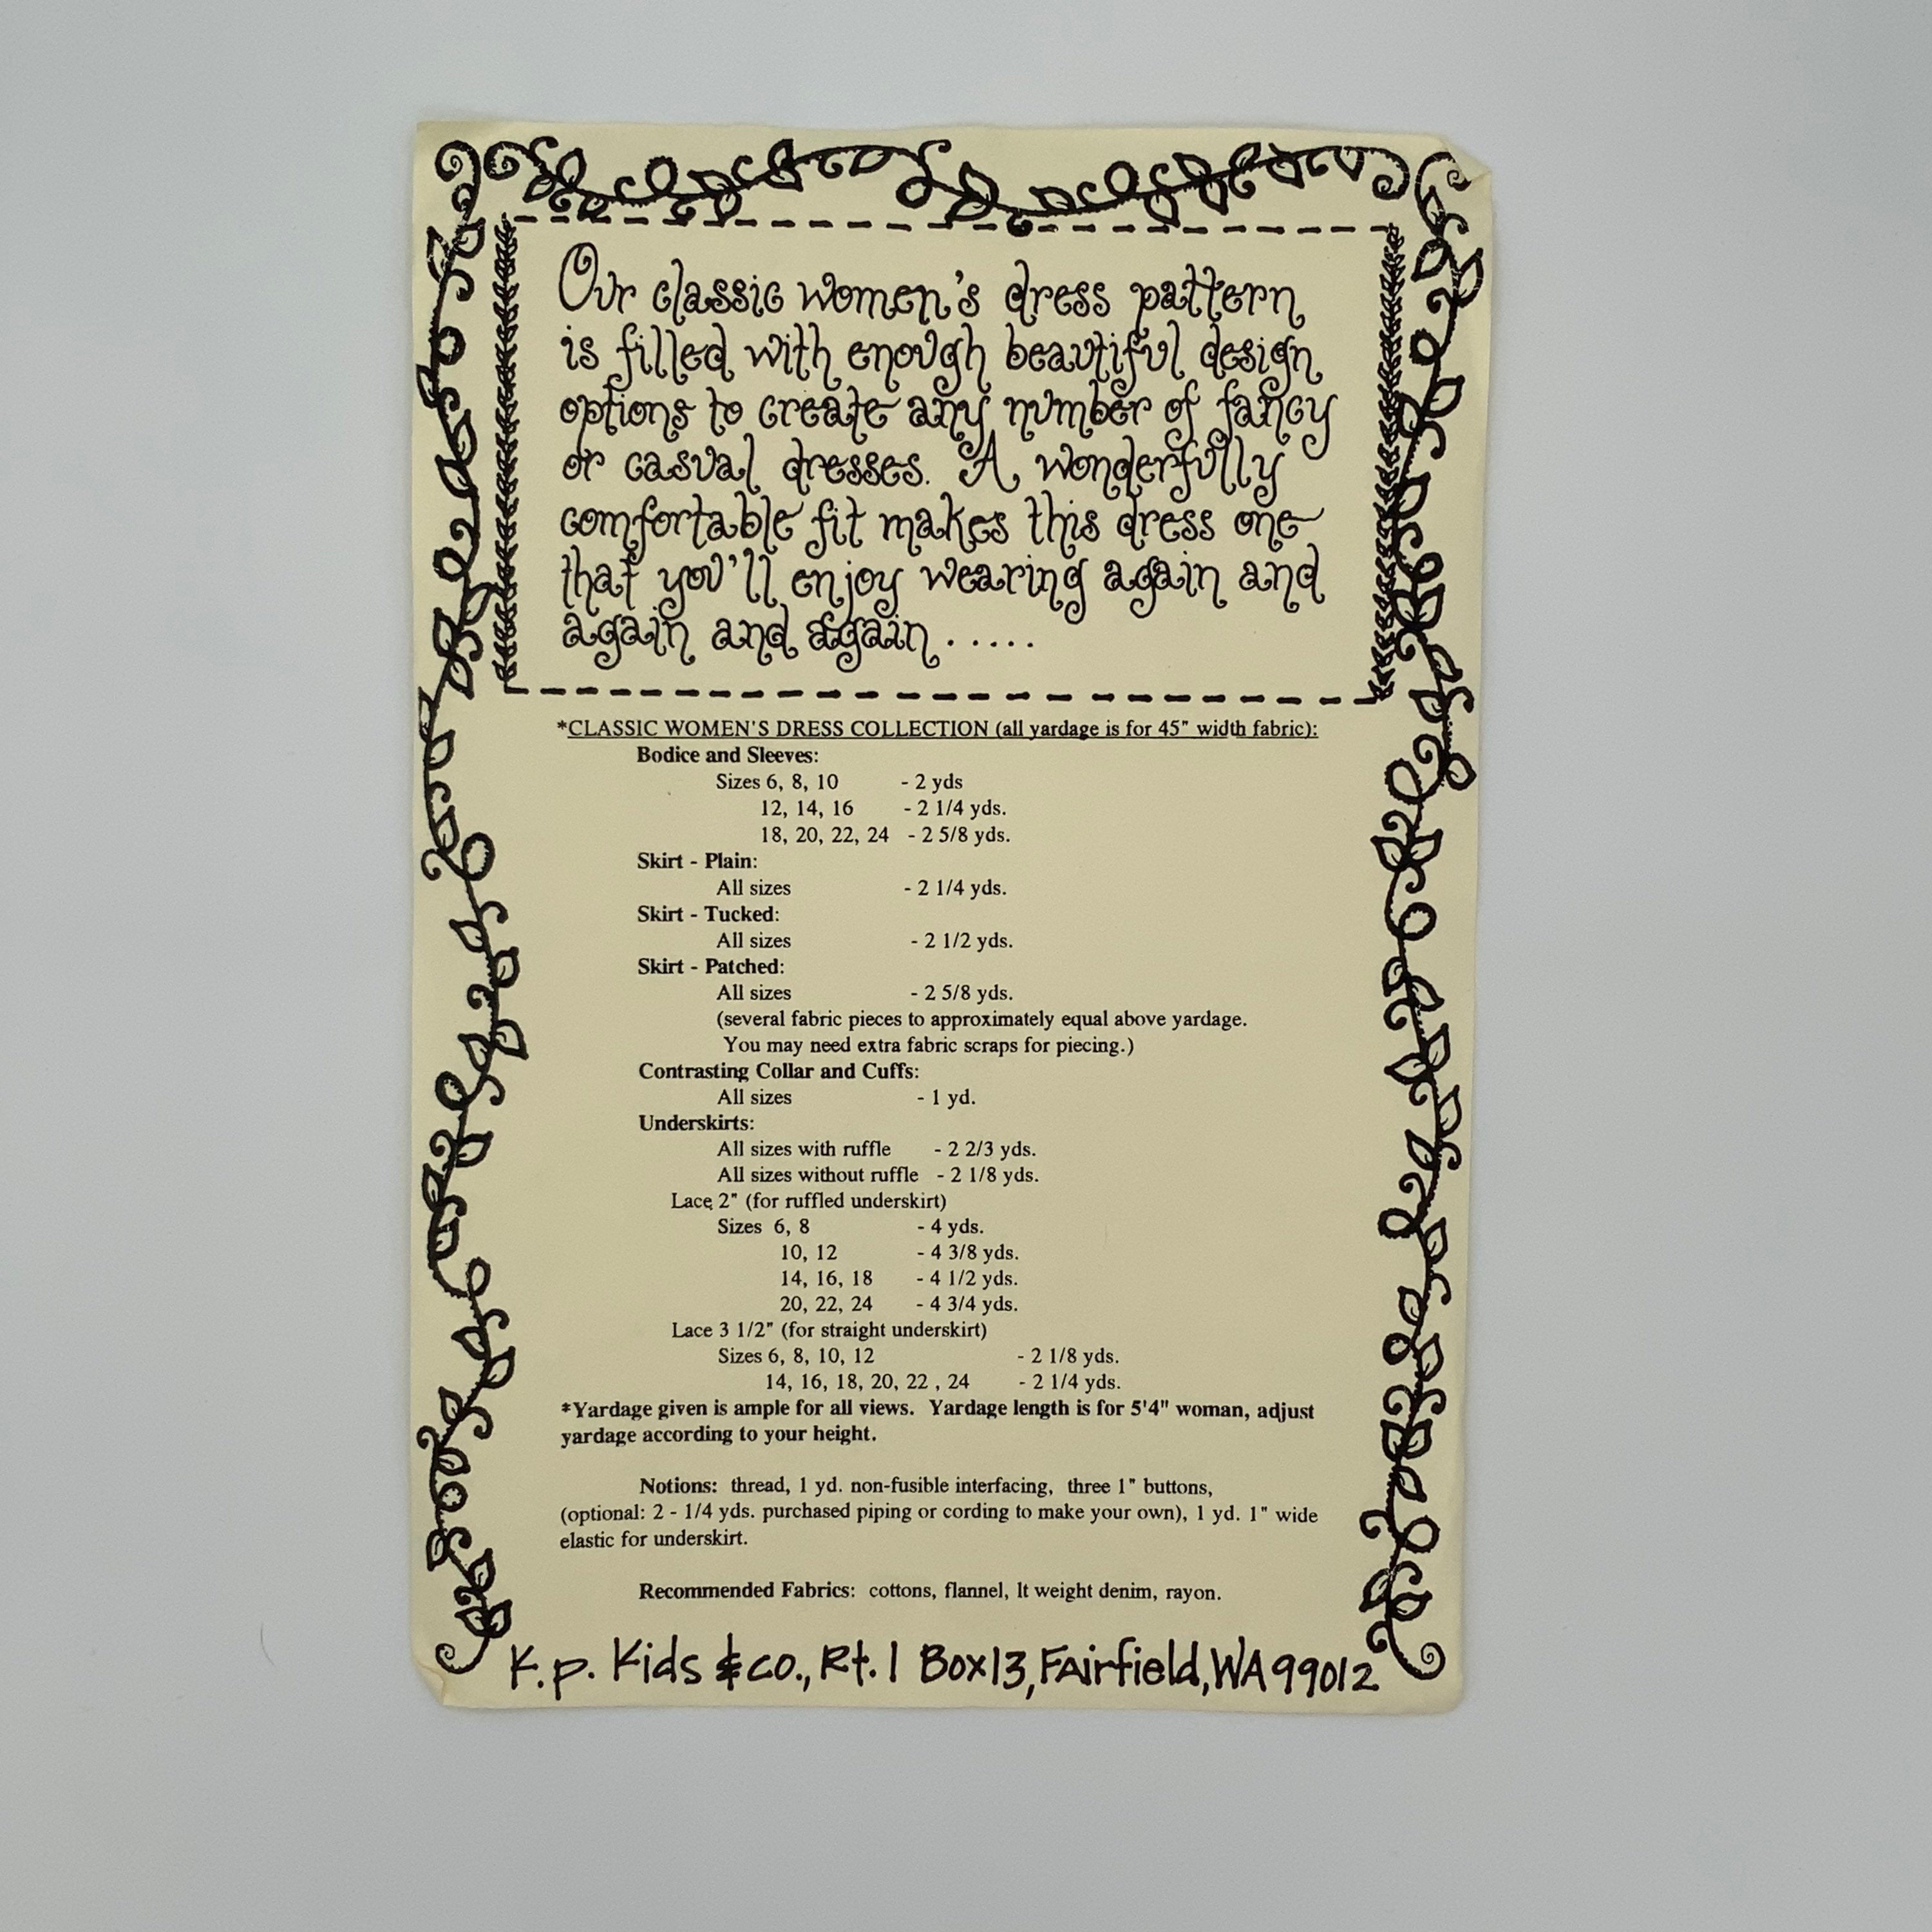 Our classic women's dress pattern
is filled with enough beautiful design
options to create any number of fancy
or casual dresses. A wonderfully
comfortable fit makes this dress one
that you'll enjoy wearing again and
again and again.....
*CLASSIC WOMEN'S DRESS COLLECTION (all yardage is for 45" width fabric):
Bodice and Sleeves:
Sizes 6, 8, 10 - 2 yds
12, 14, 16 - 2 1/4 yds.
18, 20, 22, 24 - 2 5/8 yds.
Skirt - Plain:
All sizes - 2 1/4 yds.
Skirt - Tucked:
All sizes - 2 1/2 yds.
Skirt - Patched:
All sizes - 2 5/8 yds.
(several fabric pieces to approximately equal above yardage.
You may need extra fabric scraps for piecing.)
Contrasting Collar and Cuffs:
All sizes - 1 yd.
Underskirts:
All sizes with ruffle - 2 2/3 yds.
All sizes without ruffle - 2 1/8 yds.
Lace 2" (for ruffled underskirt)
Sizes 6, 8 - 4 yds.
10, 12 - 4 3/8 yds.
14, 16, 18 - 4 1/2 yds.
20, 22, 24 - 4 3/4 yds.
Lace 3 1/2" (for straight underskirt)
Sizes 6, 8, 10, 12 - 2 1/8 yds.
14, 16, 18, 20, 22 , 24 - 2 1/4 yds.
*Yardage given is ample for all views. Yardage length is for 5'4" woman, adjust
yardage according to your height.
Notions: thread, 1 yd. non-fusible interfacing, three 1" buttons,
(optional: 2 - 1/4 yds. purchased piping or cording to make your own), 1 yd. 1" wide
elastic for underskirt.
Recommended Fabrics: cottons, flannel, lt weight denim, rayon.
K.p. Kids & co., Rt. 1 Box 13, Fairfield, WA 99012